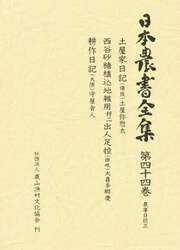 日本農書全集
第四十四巻
農事日誌三
土屋家日記（備後）土屋弥惣太
西谷砂糖植込地雑用并ニ出人足控（讃岐）大喜多郷慶
耕作日記（大隅）守屋舎人
社団法人 農山漁村文化協会 刊